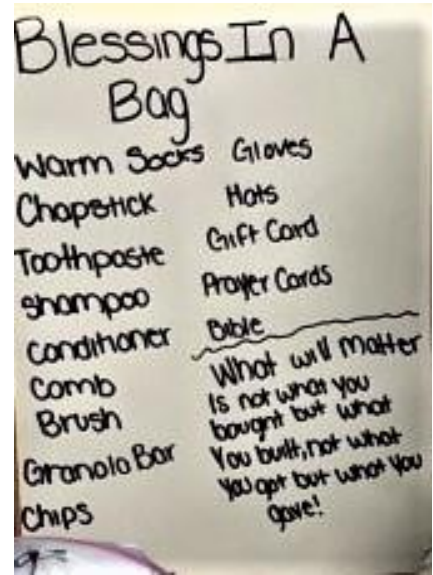 Blessings In A
Bag
Warm Socks
Chapstick
Toothpaste
Shampoo
Conditioner
Comb
Brush
Granola Bar
Chips
Gloves
Hats
Gift Card
Prayer Cards
Bible
What will matter
Is not what you
bought but what
You built, not what
You got but what you
gave!